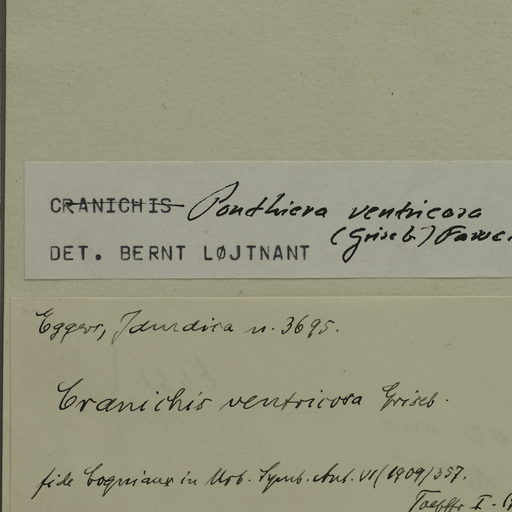 CRANICHIS Ponthieva ventricosa
(Griseb.) Fawc.
DET. BERNT LØJTNANT
Eggers, Jamaica n. 3695.
Cranichis ventricosa Griseb.
fide Cogniaux in Urb. Symb. Ant. VI (1909) 357.
Toepffer I.